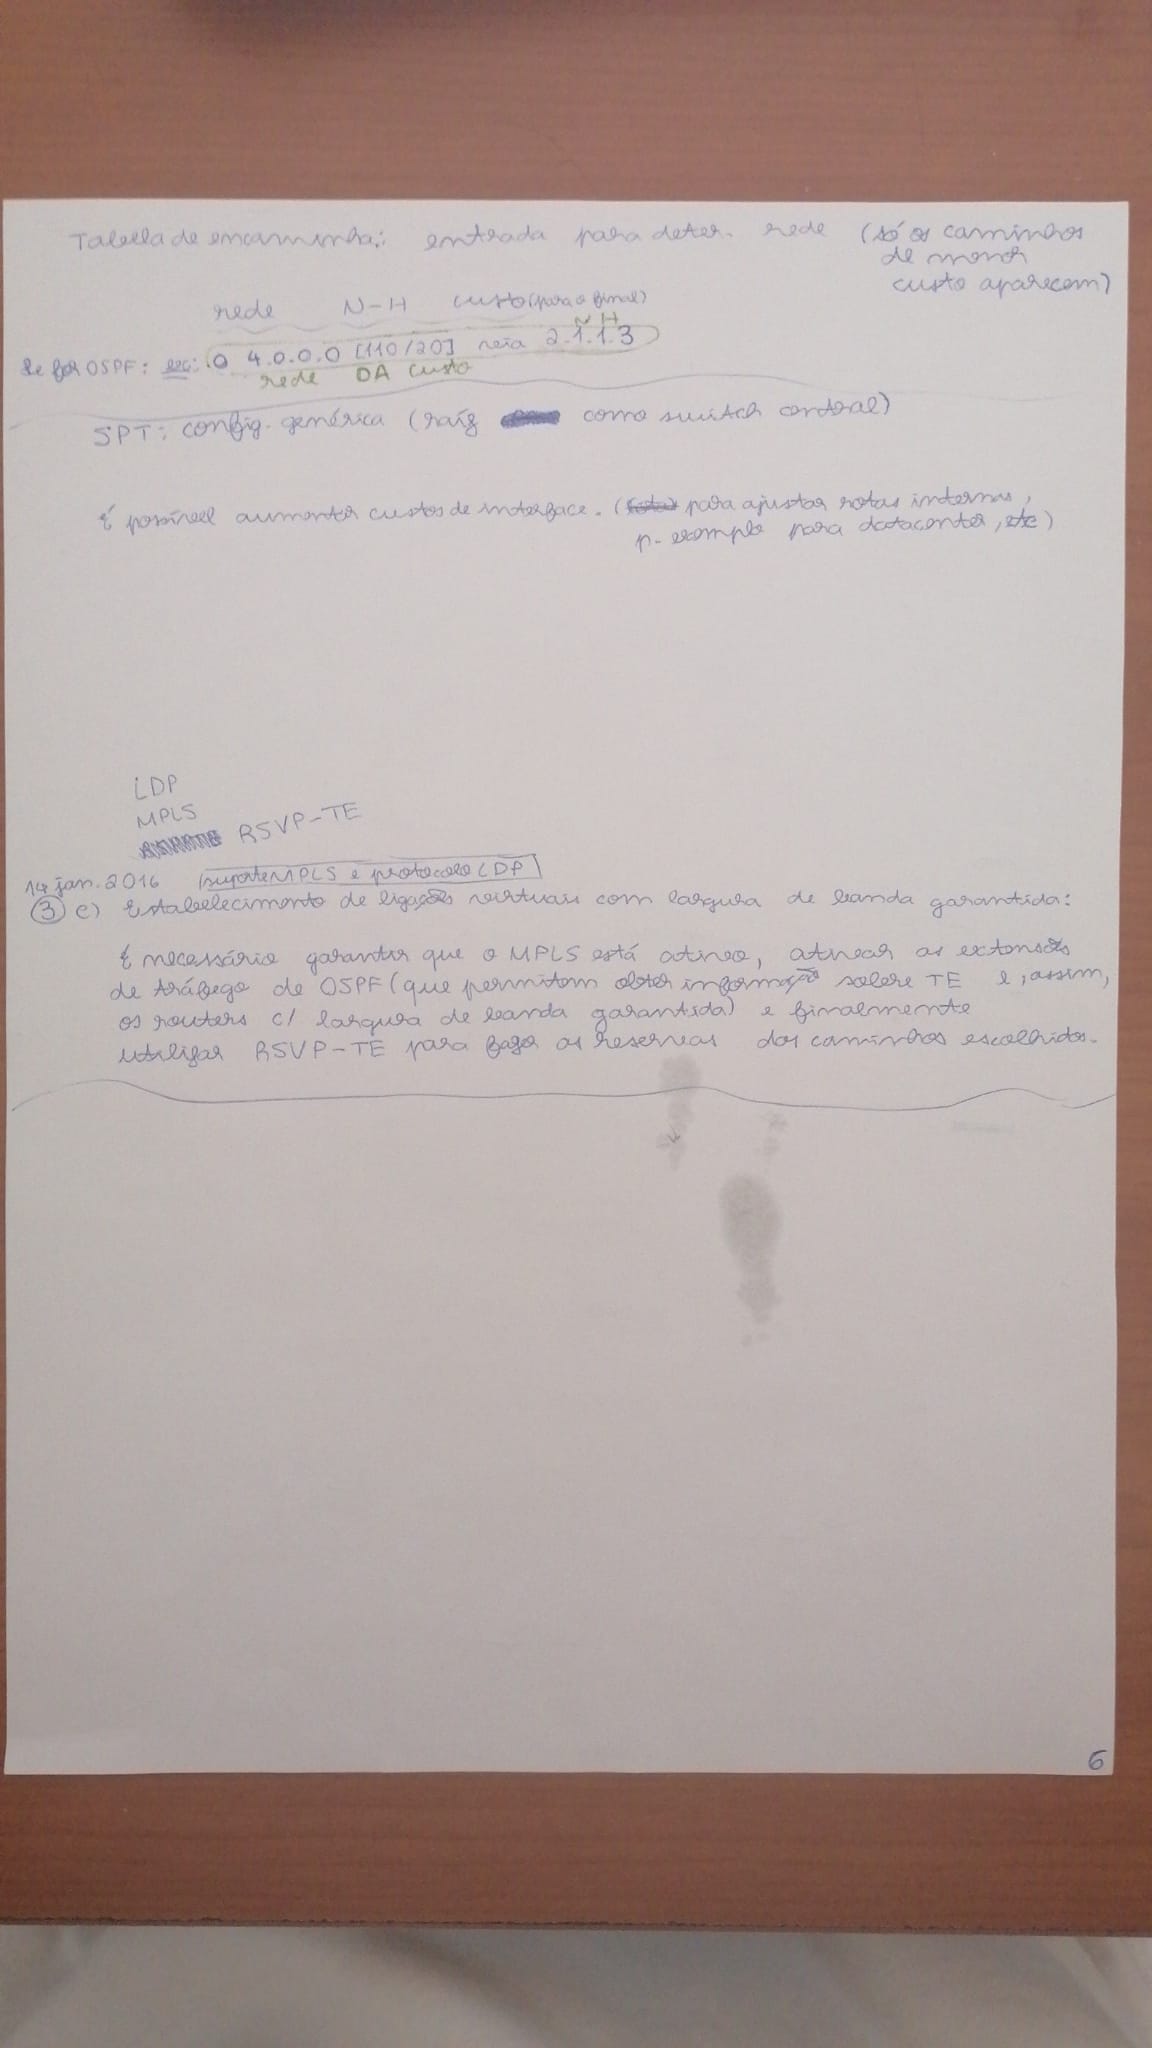 Tabela de encaminha.: entrada para deter. rede (só os caminhos
de menor
custo aparecem)
rede N-H custo (para o final)
N H
Se for OSPF: O 4.0.0.0 [110/20] via 2.1.1.3
rede DA custo
SPT: config. genérica (raíz como switch central)
É possível aumentar custos de interface. (para ajustar rotas internas,
p. exemplo para datacenter, etc)
LDP
MPLS
RSVP-TE
14 jan. 2016 suporte MPLS e protocolo LDP
3 c) Estabelecimento de ligações virtuais com largura de banda garantida:
É necessário garantir que o MPLS está ativo, ativar as extensões
de tráfego de OSPF (que permitem obter informação sobre TE e, assim,
os routers c/ largura de banda garantida) e finalmente
utilizar RSVP-TE para fazer as reservas dos caminhos escolhidos.
6